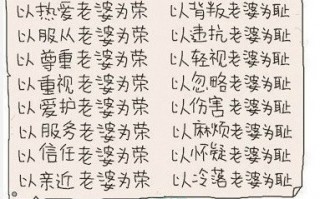 以热爱老婆为荣 以背叛老婆为耻
以服从老婆为荣 以违抗老婆为耻
以尊重老婆为荣 以轻视老婆为耻
以重视老婆为荣 以忽略老婆为耻
以爱护老婆为荣 以伤害老婆为耻
以服务老婆为荣 以麻烦老婆为耻
以信任老婆为荣 以怀疑老婆为耻
以亲近老婆为荣 以冷落老婆为耻